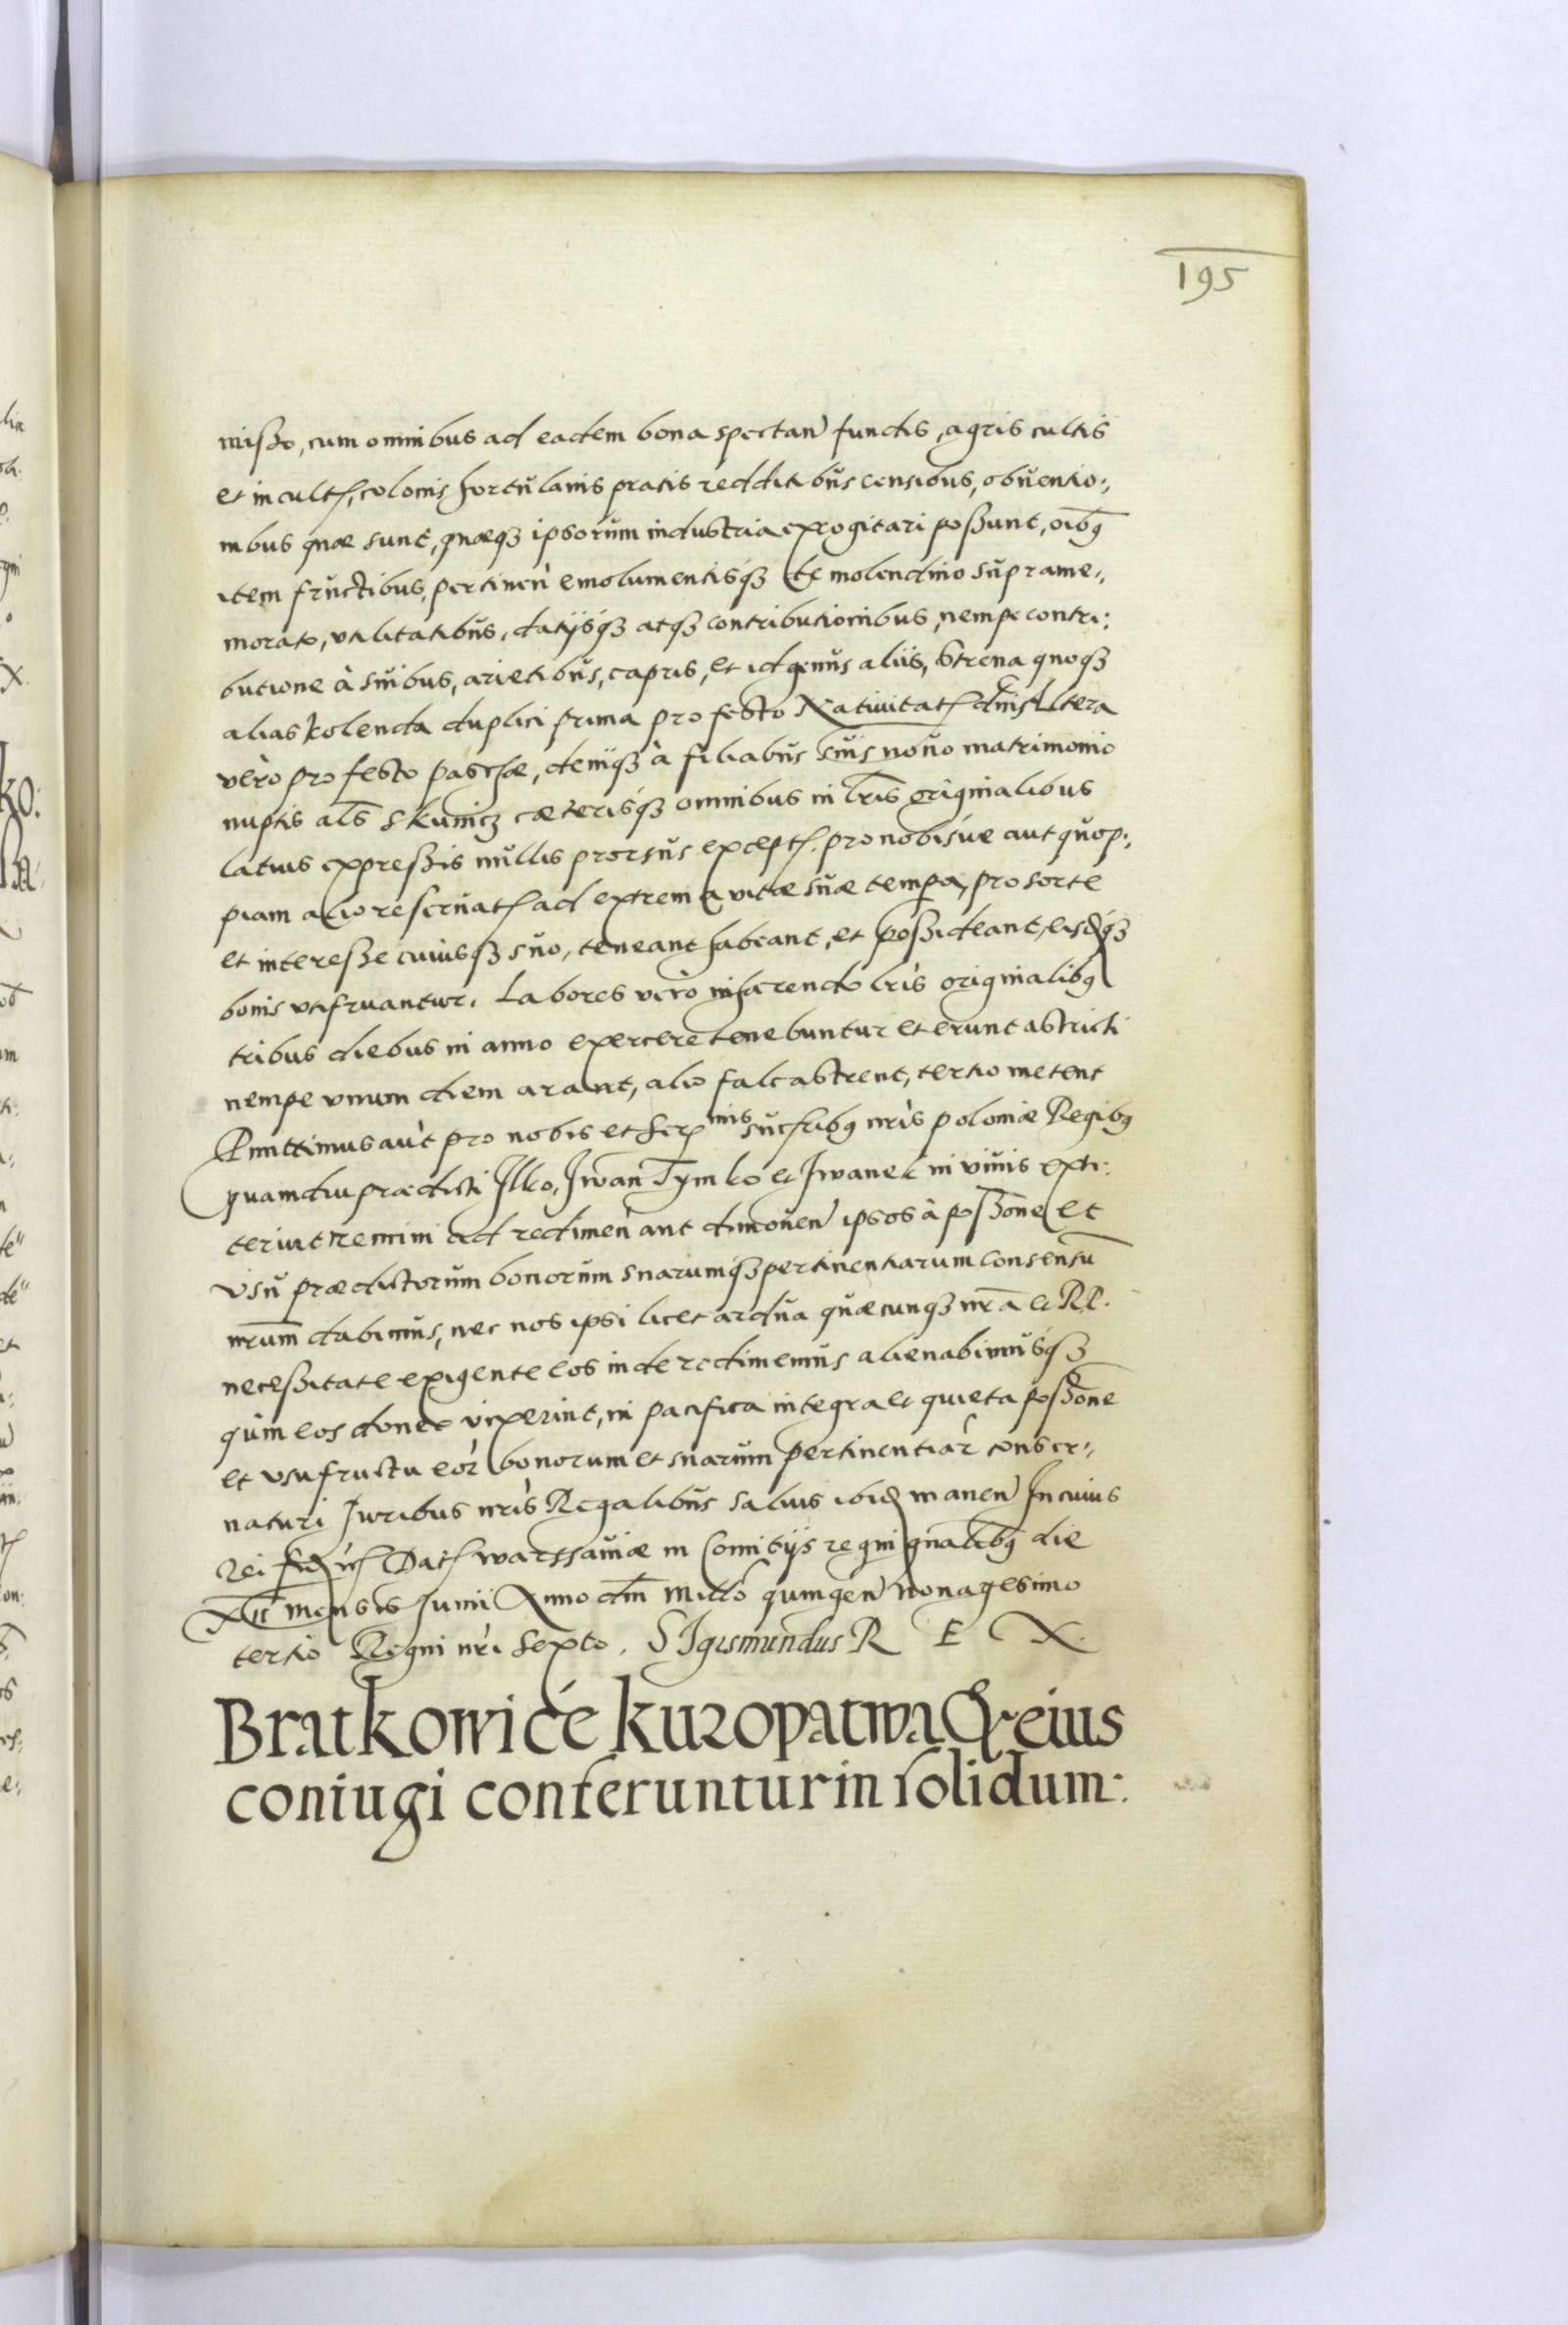 195
misso, cum omnibus ad eadem bona spectan̄ fundis, agris cultis
et incult, colonis hortulanis pratis redditibus censibus, obventio:,
nibus quae sunt, quaeqꝫ ipsorum industria excogitari possunt, oibꝰ
item fructibus, pertinen̄ emolumentisqꝫ de molendino suprame:,
morato, utilitatibus, datijsqꝫ atqꝫ contributionibus, nempe contri:
butione à suibus, arietibus, capris, et id genus aliis, Strena quoqꝫ
alias kolenda duplici prima pro festo Nativitat dnis Altera
vero pro festo paschae, deniqꝫ à filiabus suis novo matrimonio
nuptis als Skunicz caeterisqꝫ omnibus in lris originalibus
latius expressis nullis prorsus except, pro nobisue aut quop:,
piam alio reservat ad extrema vitae suae tempa, pro sorte
et interesse cuiusqꝫ suo, teneant habeant, et possideant, eisdqꝫ
bonis utifruantur. Labores vero inhaerendo lris originalibꝰ
tribus diebus in anno exercere tenebuntur et erunt astricti
nempe unum diem arabunt, alio falcastrent, tertio metent
Pmittimus aut pro nobis et Ser nis sucsribꝰ nris poloniae Regibꝰ
quamdiu praedicti Ilko, Iwan Tymko et Iwanek in vivis exti:
terint nemini ad redimen̄ aut dimoven̄ ipsos à possone et
usu praedictorum bonorum suarumqꝫ pertinentiarum consensū
nrum dabimus, nec nos ipsi licet ardua quaecunqꝫ nrā et RP.
necessitate exigente eos inde redimemus alienabimusqꝫ
quin eos donec vixerint, in pacifica integra et quieta possone
et usufructu eor bonorum et suarum pertinentiar conser:,
vaturi Iuribus nris Regalibus salvis ibid manen̄ In cuius
rei fid Dat warssaviae in Comitijs regni gnalibꝰ die
mensis Iunii Anno dm Millo quingen̄ Nonagesimo
tertio Regni nri Sexto. SIgismundus R E X.
Bratkowice kuropatwa & eius
coniugi conferuntur in solidum: